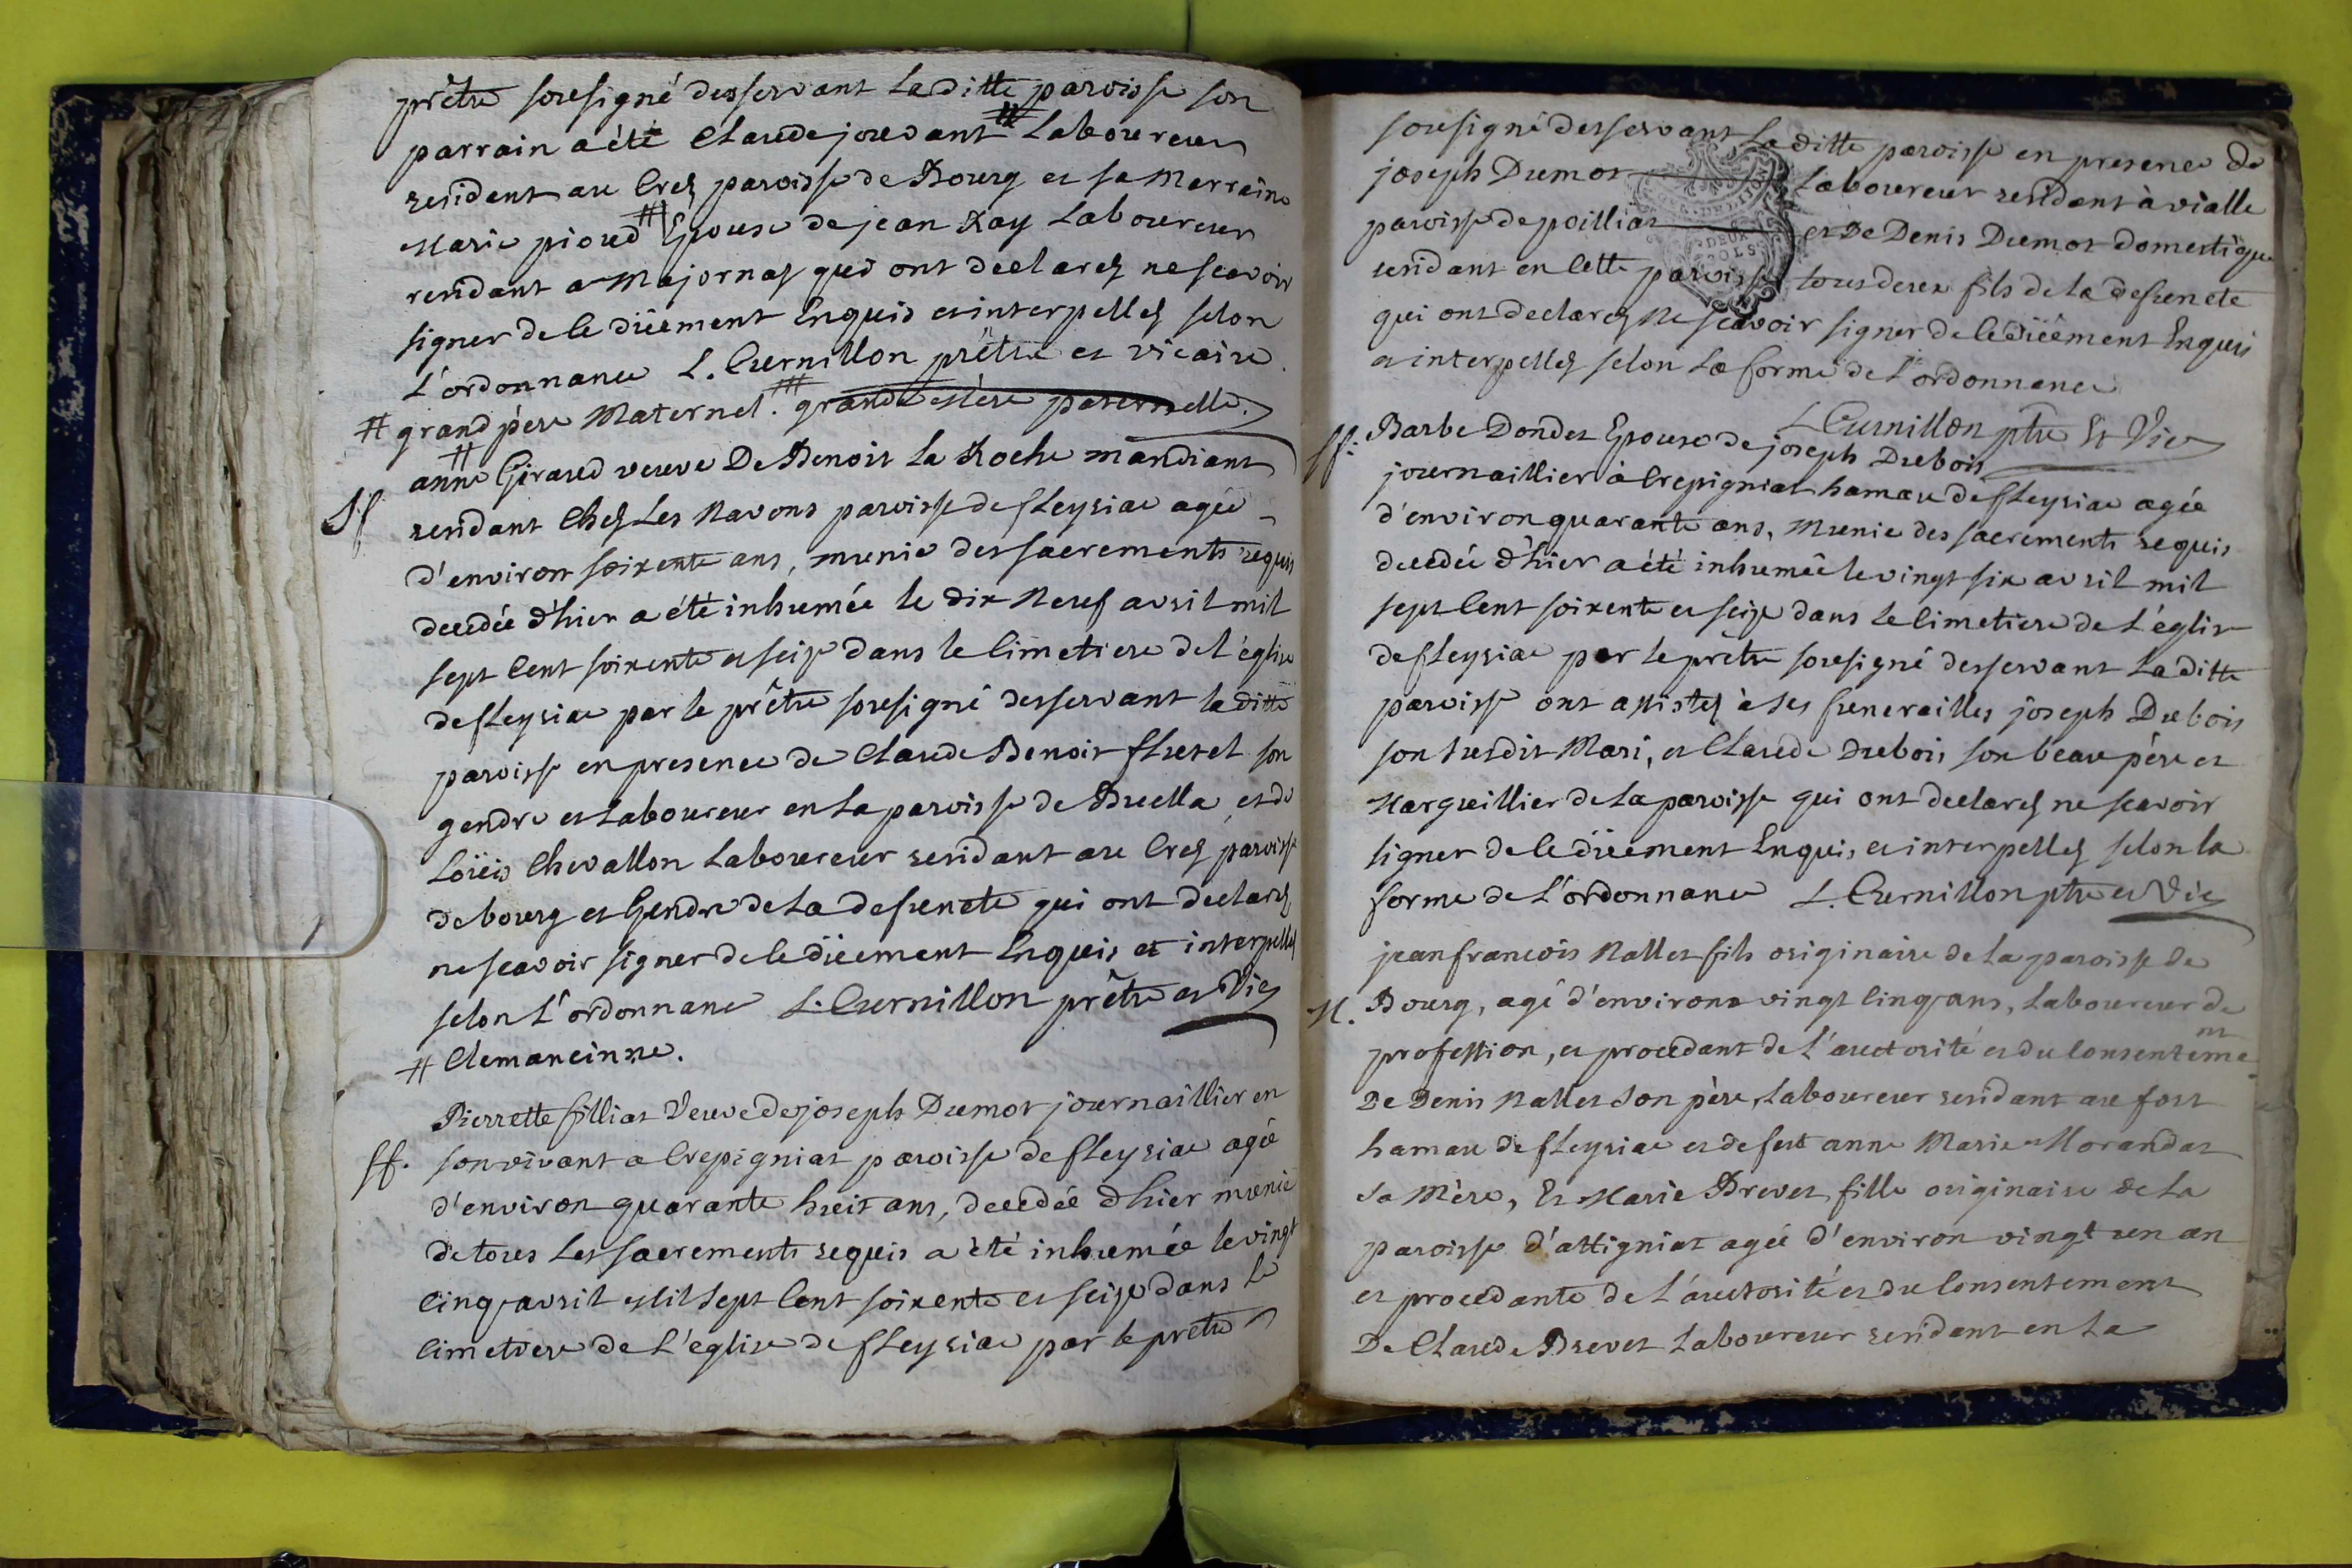 prêtre sousigné desservant laditte paroisse son
parrain a été Claude jouvant # Laboureur
resident au Crez paroisse de Bourg et sa Marraine
Marie pioud #|# Épouse de jean Ray Laboureur
resident a Majornas qui ont declarez ne scavoir
signer de ce düement Enquis et interpellez selon
L'ordonnance L. Curnillon prêtre et vicaire.
# grand père Maternel. #|# grande Mère paternelle.
#
anne Giraud veuve De Benoit La Roche mandiant
ff residant Chez Les Navons paroisse de fleyriac agée
d'environ soixente ans, munie des sacrements requis
decedée d'hier a été inhumée le dix Neuf avril mil
sept Cent soixente et seize dans le Cimetiere de l'église
de fleyriac par le prêtre sousigné desservant laditte
paroisse en presence de Claude Benoit fluret son
gendre et Laboureur en La paroisse de Buella et de
Loüis Chevallon Laboureur residant au Crez paroisse
de bourg et Gendre de La defuncte qui ont declarez
ne scavoir signer de ce düement Enquis et interpellez
selon L'ordonnance L. Curnillon prêtre et Vic
# Clemancinne.
Pierrette filliat Veuve de joseph Dumot journaillier en
ff. son vivant a Crepigniat paroisse de fleyriac agée
d'environ quarante huit ans, decedée d'hier munie
de tous Les sacrements requis a été inhumée le vingt
Cinq avril Mil Sept Cent soixente et seize dans le
Cimetiere de L'eglise de fleyriac par le prêtre
sousigné desservant Laditte paroisse en presence de
joseph Dumot Laboureur residant à vialle
paroisse de poilliat et De Denis Dumot domestique
residant en Cette paroisse tous deux fils de La defuncte
qui ont declarez Ne scavoir signer de ce düement Enquis
et interpellez selon La forme de L'ordonnance
L Curnillon ptre Et Vic
ff. Barbe Dondet Epouse de joseph Dubois
journaillier à Crepigniat hamau de fleyriac agée
d'environ quarante ans, Munie des sacrements requis
decedée d'hier a été inhumée le vingt six avril mil
sept Cent soixente et seize dans le Cimetiere de L'église
de fleyriac par le prêtre sousigné desservant Laditte
paroisse ont assistez à ses funerailles joseph Dubois
son susdit Mari, et Claude Dubois son beau père et
Marguillier de La paroisse qui ont declarez ne scavoir
signer de ce düement Enquis et interpellez selon la
forme de L'ordonnance L. Curnillon ptre et Vic
jean francois Nallet fils originaire de La paroisse de
M. Bourg, agé d'environ vingt Cinq ans, Laboureur de
profession, et procedant de L'auctorité et du Consenteme nt
De Denis Nallet Son père, Laboureur residant au fort
hamau de fleyriac et de fut anne Marie Morandat
Sa Mère, Et Marie Brevet fille originaire de La
paroisse d'attigniat agée d'environ vingt un an
et procedante de L'auctorité et du Consentement
De Claude Brevet Laboureur residant en La